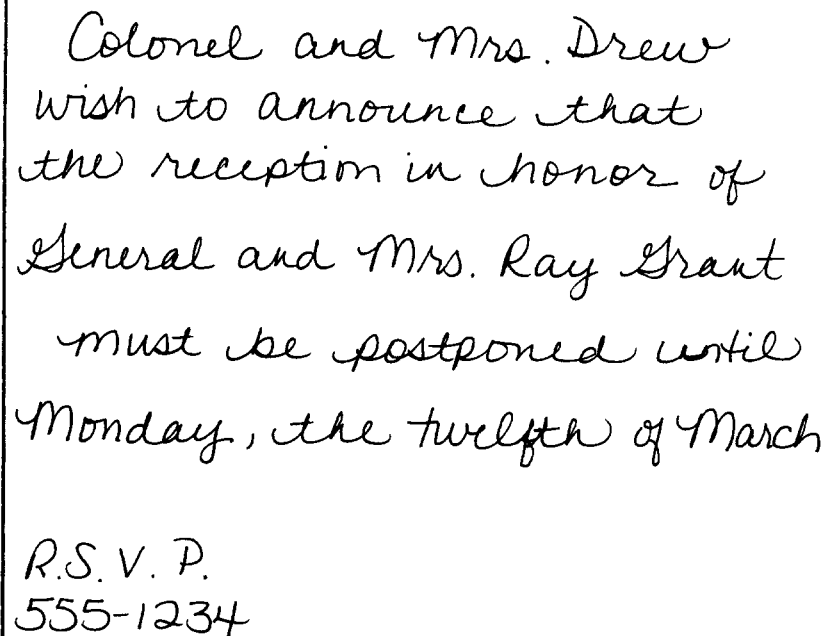 Colonel and Mrs. Drew
wish to announce that
the reception in honor of
General and Mrs. Ray Grant
must be postponed until
Monday, the twelfth of March
R.S.V.P.
555-1234